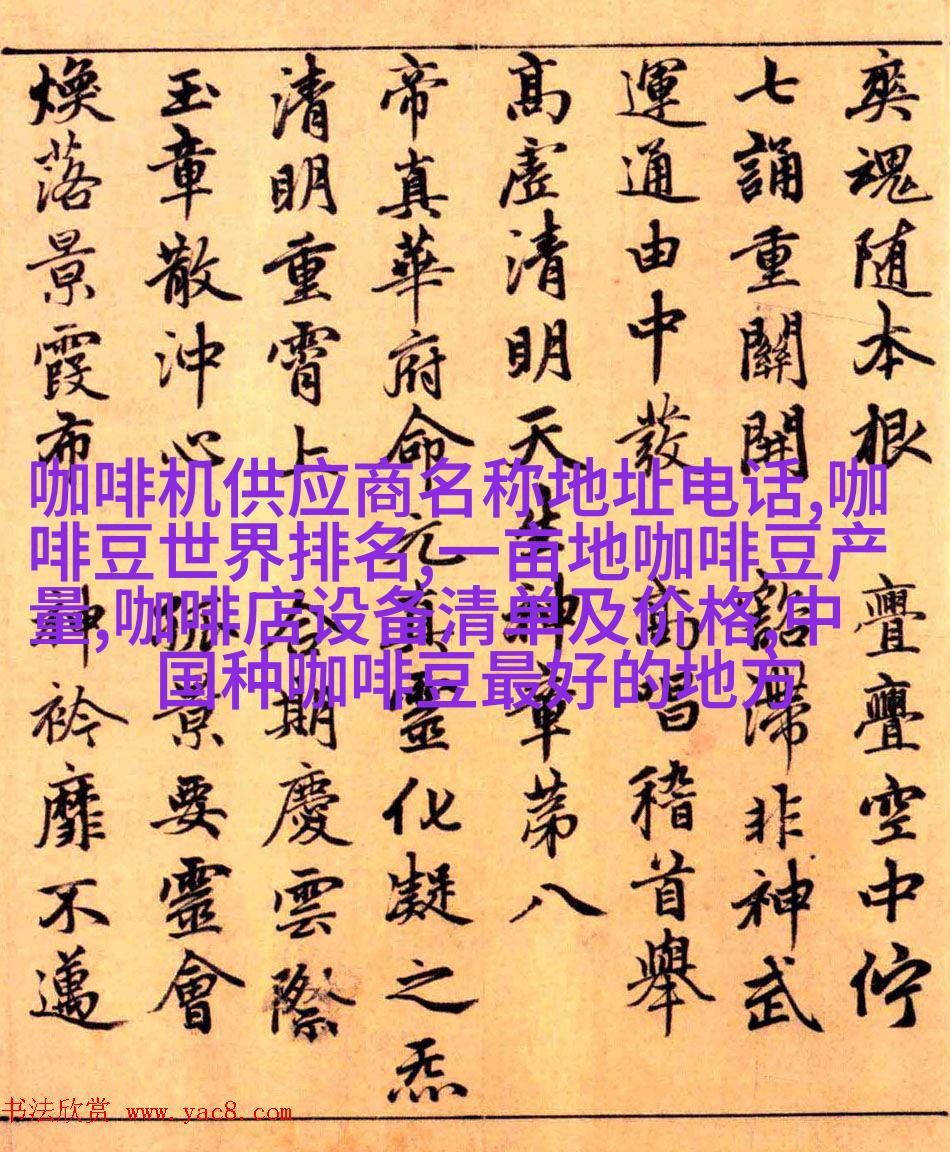 奕魂随本根 亹亹空中佇
七誦重關開 豁滯非神武
運通由中發 高唱稽首舉
高虛清明天生神章第八
帝真華府命元真靈化凝之炁
清明重霄上 合期慶雲際
玉章散沖心 景要靈會
煥落景霞布 神衿靡不邁
咖啡机供应商名称地址电话,咖
啡豆世界排名,一亩地咖啡豆产
量,咖啡店设备清单及价格,中
国种咖啡豆最好的地方
书法欣赏 www.yac8.com